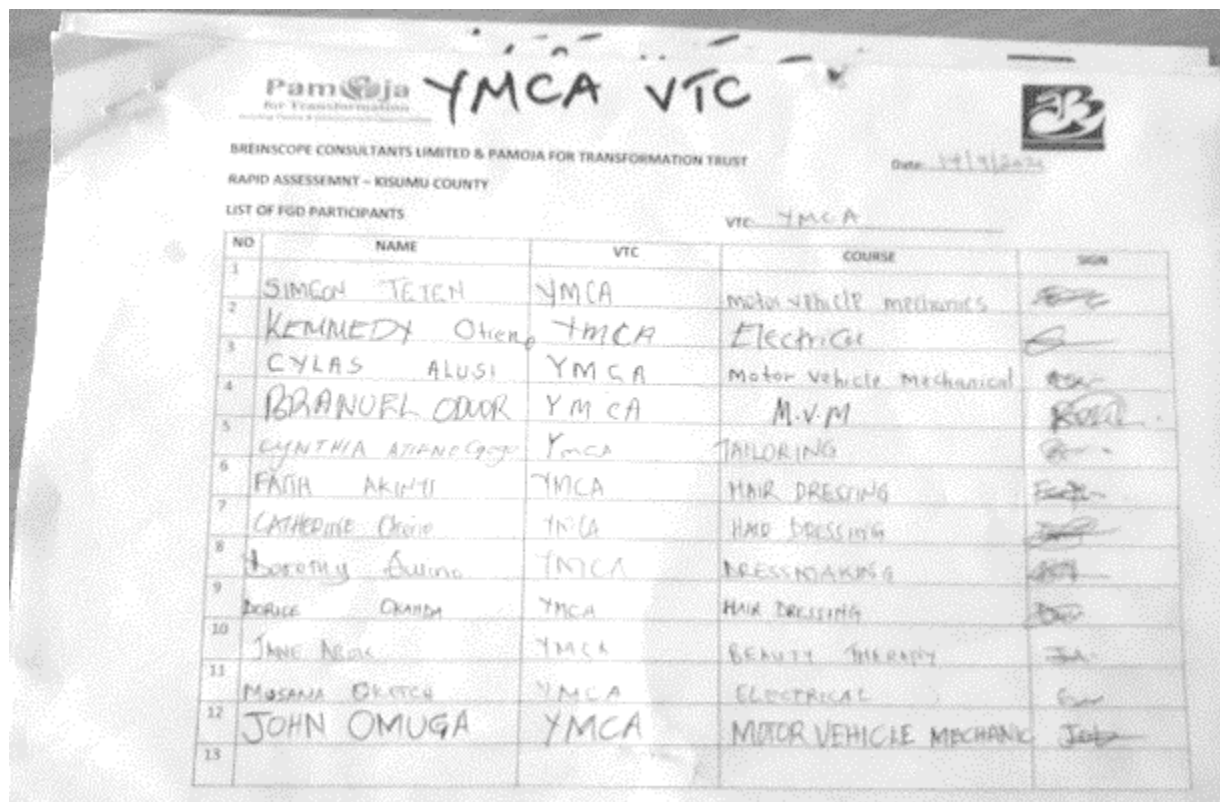 YMCA VTC
Pamoja
for Transformation
BREINSCOPE CONSULTANTS LIMITED & PAMOJA FOR TRANSFORMATION TRUST
Date:
RAPID ASSESSEMNT – KISUMU COUNTY
LIST OF FGD PARTICIPANTS
VTC YMCA
NO NAME VTC COURSE SIGN
1 SIMEON TETEN YMCA Motor vehicle mechanics
2 KENNEDY Otieno YMCA Electrical
3 CYLAS ALUSI YMCA Motor Vehicle Mechanical
4 BRANUEL ODUOR YMCA M.V.M
5 CYNTHIA ATIENO YMCA TAILORING
6 FAITH AKINYI YMCA HAIR DRESSING
7 CATHERINE YMCA HAIR DRESSING
8 Dorothy Awino YMCA DRESSMAKING
9 DORICE OKANDA YMCA HAIR DRESSING
10 JANE YMCA BEAUTY THERAPY
11 MUSANA OKETCH YMCA ELECTRICAL
12 JOHN OMUGA YMCA MOTOR VEHICLE MECHANIC
13